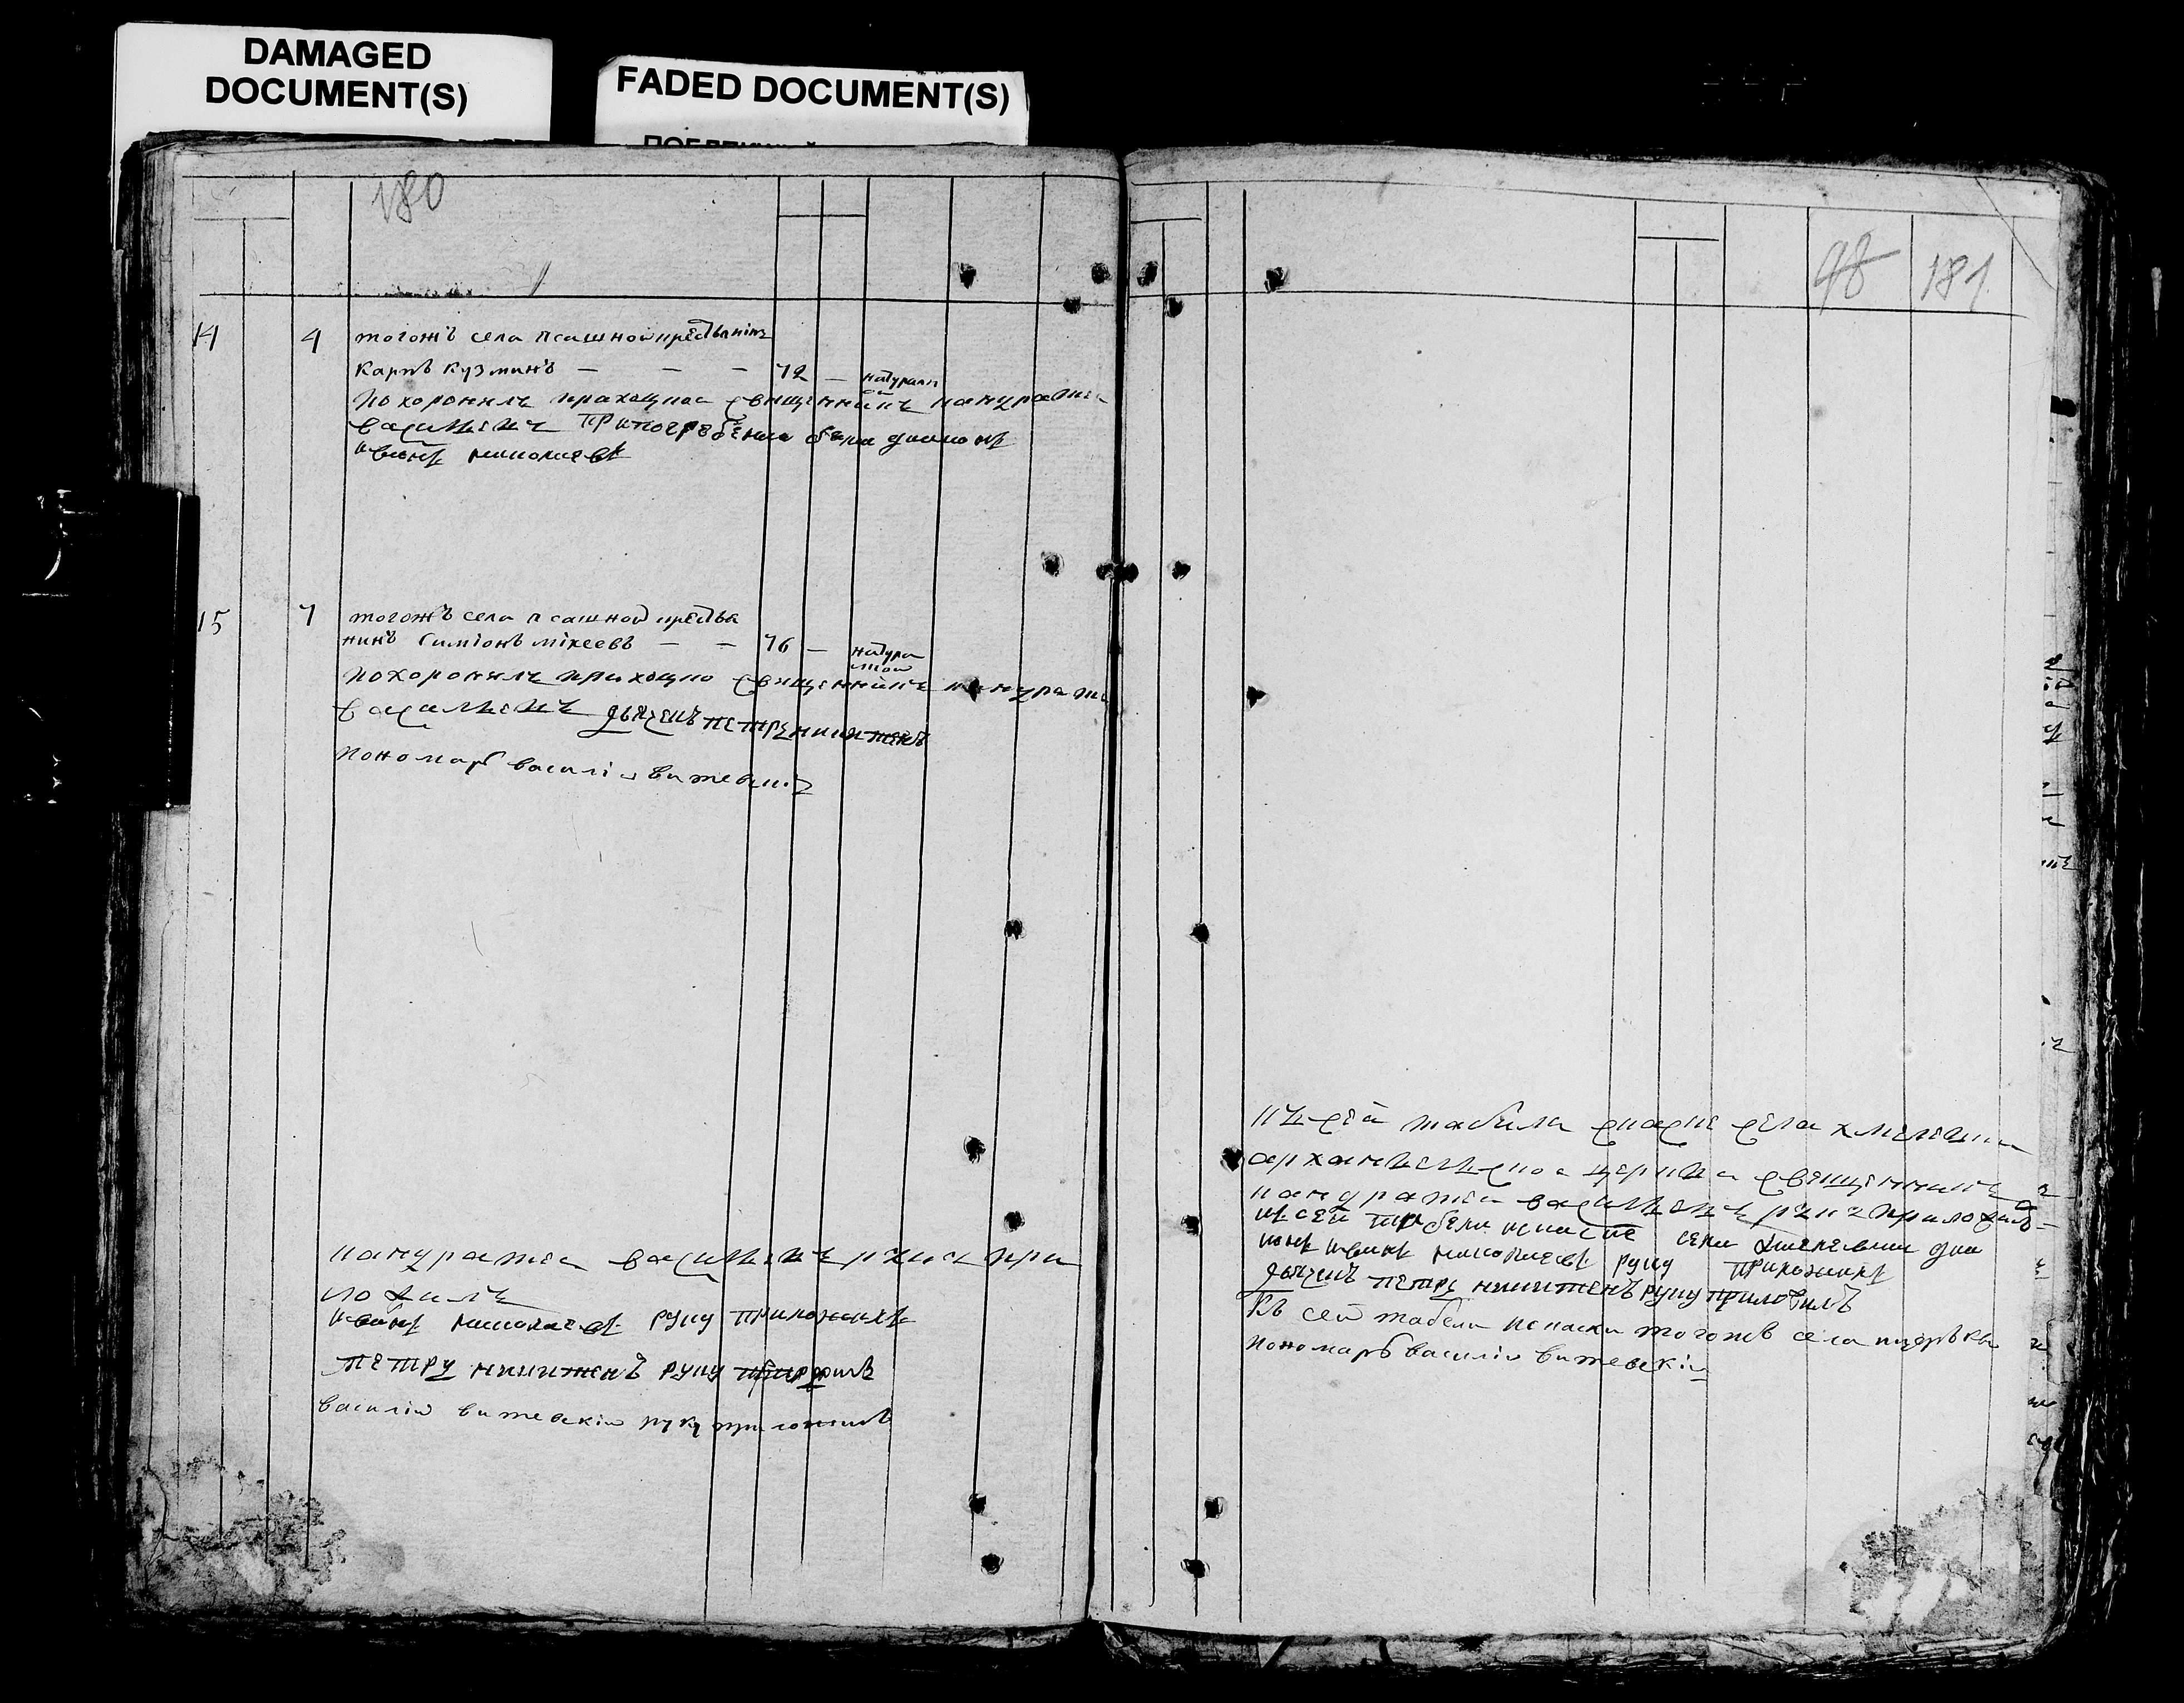 DAMAGED
DOCUMENT(S)
FADED DOCUMENT(S)
180
14 4 тогожъ села псашной крестьянинъ
Карпъ Кузминъ — — — 72 — натурални
похоронилъ священникъ кандратей
васильевъ при погребении были диаконъ
иванъ николаевъ
15 7 тогожъ села псашной крестья
нинъ Симионъ міхеевъ — — 76 — натура
похоронилъ священникъ кандратей
васильевъ дьячекъ петръ никитинъ
пономарь василій витевскій
кандратей васильевъ руку при
ложилъ
иванъ николаевъ руку приложилъ
петръ никитинъ руку приложилъ
василій витевскій руку приложилъ
98 181
къ сей табели села хмелевки
церкви священникъ
кандратей васильевъ руку приложилъ
къ сей табели села хмелевки диа
конъ иванъ николаевъ руку приложилъ
дьячекъ петръ никитинъ руку приложилъ
Къ сей табели тогожъ села церькви
пономарь василій витевскій